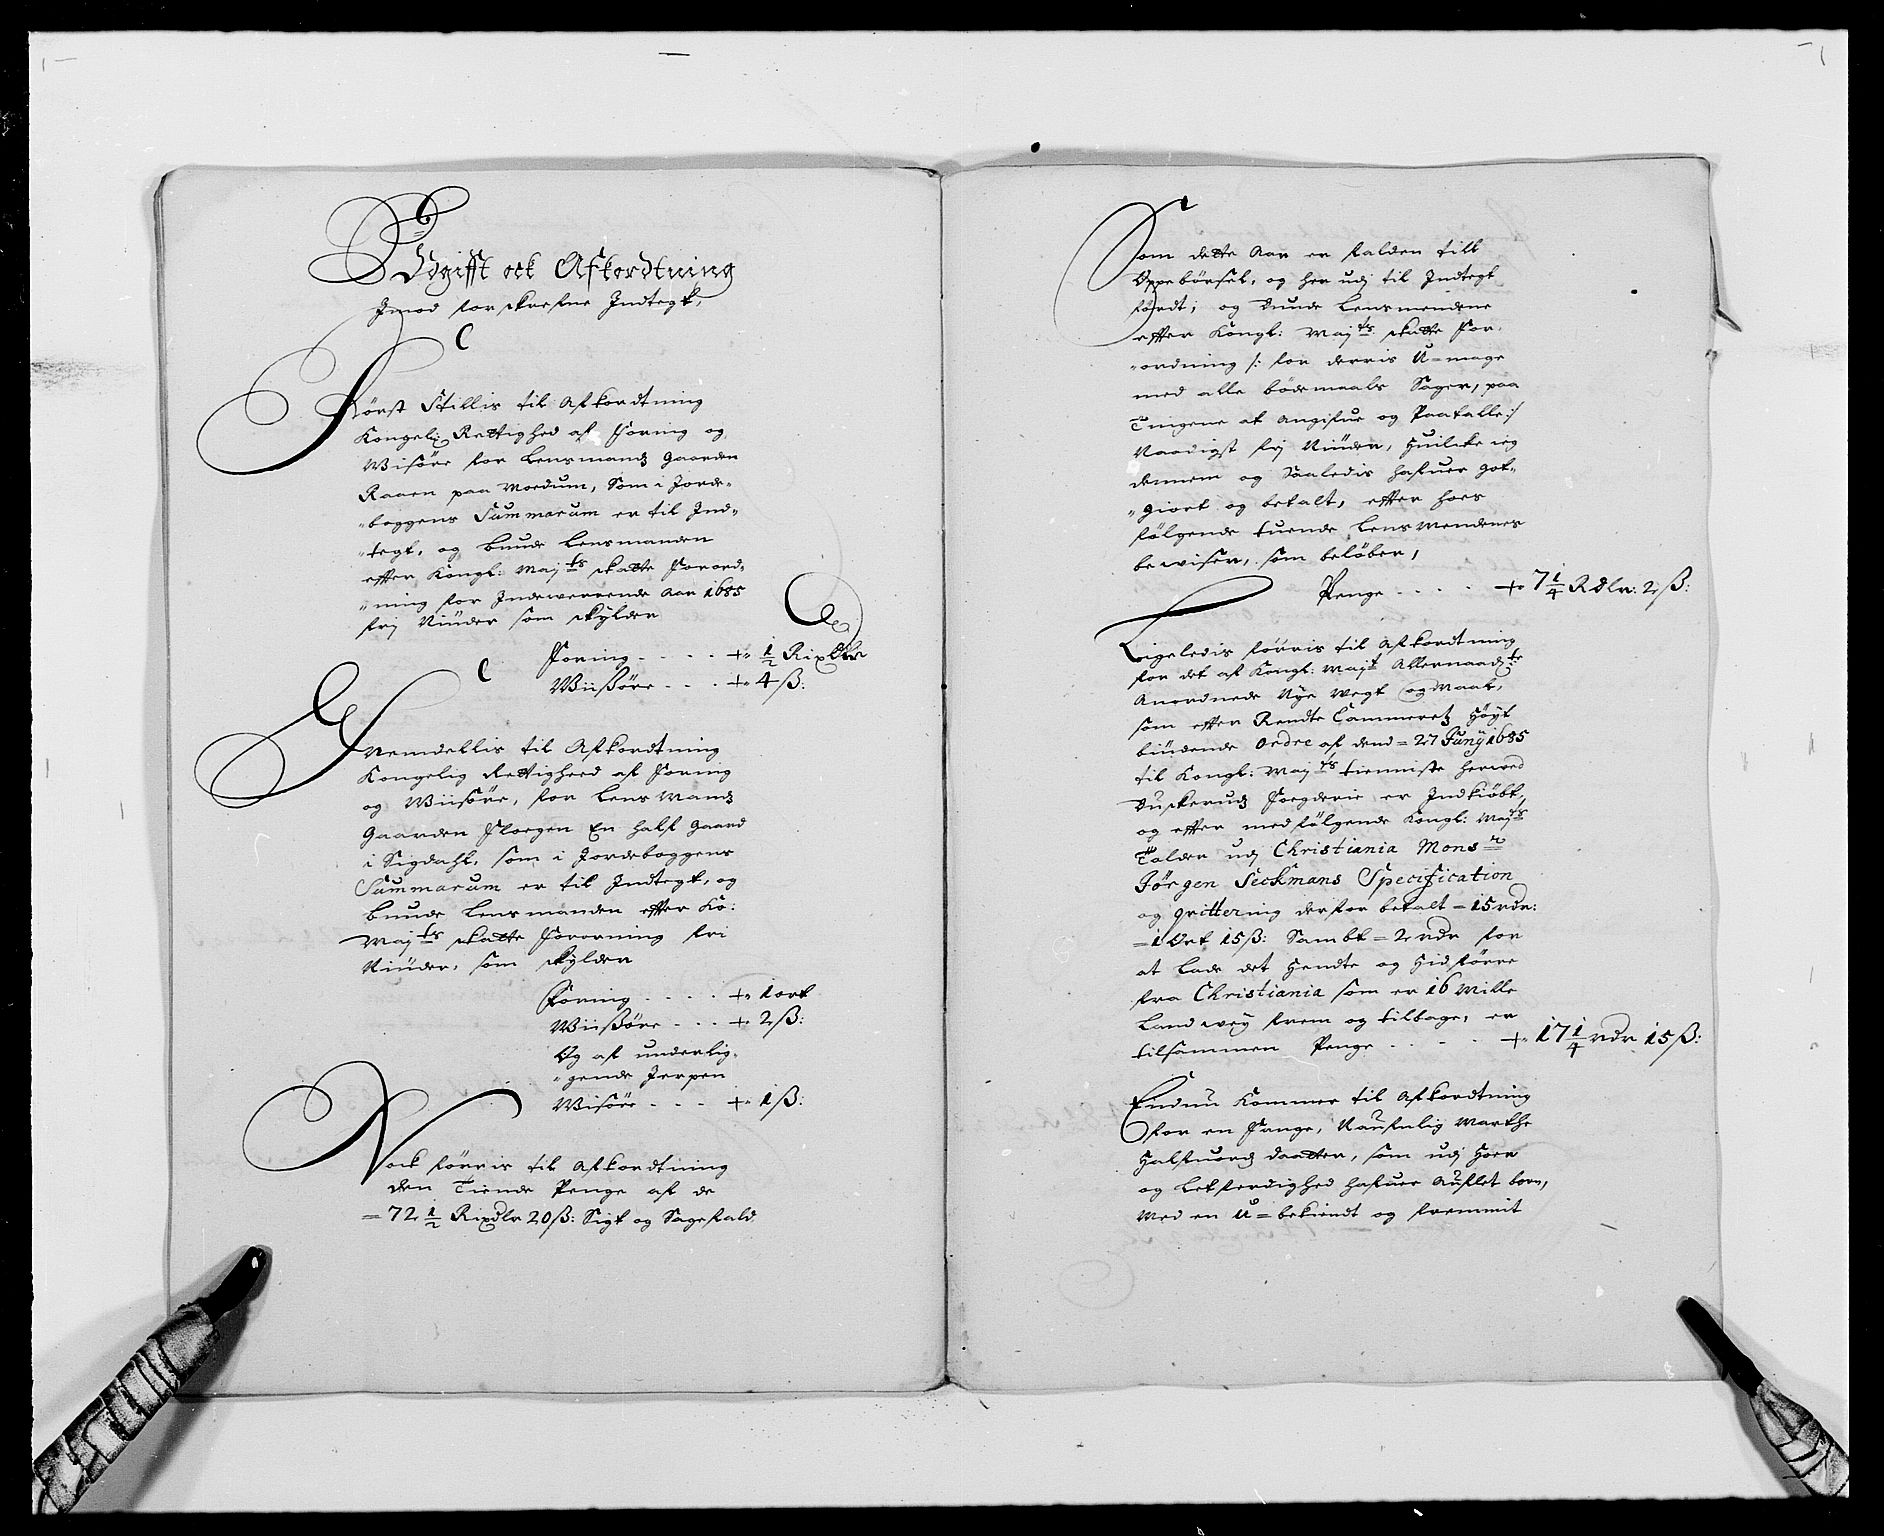 Udgifft ock Afkordtning
Imod forskrefne Indtegt,
Först Stillis til Afkordtning
Kongelig Rettighed af Foring og
Wisöre for Lensmands Gaarden
Raaen paa Moedum, Som i Jorde-
"boggens Summarum er til Ind-
"tegt, og bunde Lensmanden
effter Kongl: Maj:ts skatte Forord-
"ning for Indewerende Aar 1685
frj Niuder som skylder
Foring - - - - + 1/2 Rixdlr
Wiißöre - - - + 4 ß:
Fremdellis til Afkordtning
Kongelig Rettigheed af Foring
og Wiisöre, for Lens Mands
Gaarden Floegen En half Gaard
i Sigdahl, som i Jordeboggens
Summarum er til Indtegt, og
bunde Lensmanden effter Ko:
Maj:ts skatte Fororning fri
Niuder, som skylder
Foring - - - - + 1 ort
Wiißöre - - - + 2 ß:
Og af underlig-
"gende Jerpen
Wisöre - - - + 1 ß:
Nock förris til Afkordtning
den Tiende Penge af de
= 72 1/2 Rixdlr 20 ß: Sigt og Sagefald
Som dette Aar er falden till
Oppebörsel, og her udj til Indtegt
fördt; og bunde Lensmendene
effter Kongl: Maj:ts skatte For-
"ordning /: for derris U=mage
med alle bödemaals Sager, paa
Tingene at angifue og Paatalle :/
Naadigst frj Niuder, Huilcke ieg
dennem og Saaledis hafuer got-
"giort og betalt, effter hoes
fölgende tuende Lens Mendenes
bewiser, som belöber,
Penge - - - - + 7 1/4 Rdlr: 2 ß:
Ligeledis förris til Afkordtning
for det af Kongl: Maj:t Allernaadigste
Anordnede Nye Wegt og Maal,
som effter Rendte Cammerets Höyt
biudende Ordre af dend = 27 Junij 1685
til Kongl: Maj:ts tienniste herwed
Buskeruds Foegderie er Indkiöbt,
og effter medfölgende Kongl: Maj:ts
Tolder udj Christiania Mons:r
Jörgen Seckmans Specification
og qvittering derfor betalt = 15 rdr:
= 1 Ort 15 ß: Sambt = 2 rdr for
at lade det Hendte og Hidförre
fra Christiania som er 16 Mille
Landwey frem og tilbage, er
tilsammen Penge - - - - + 17 1/4 rdr 15 ß:
Endnu Kommer til Afkordtning
for en Fange, Naufnlig Marthe
Halfuords daatter, som udj Hoer
og Letferdighed hafuer Auflet born,
Med en U=bekiendt og fremmit